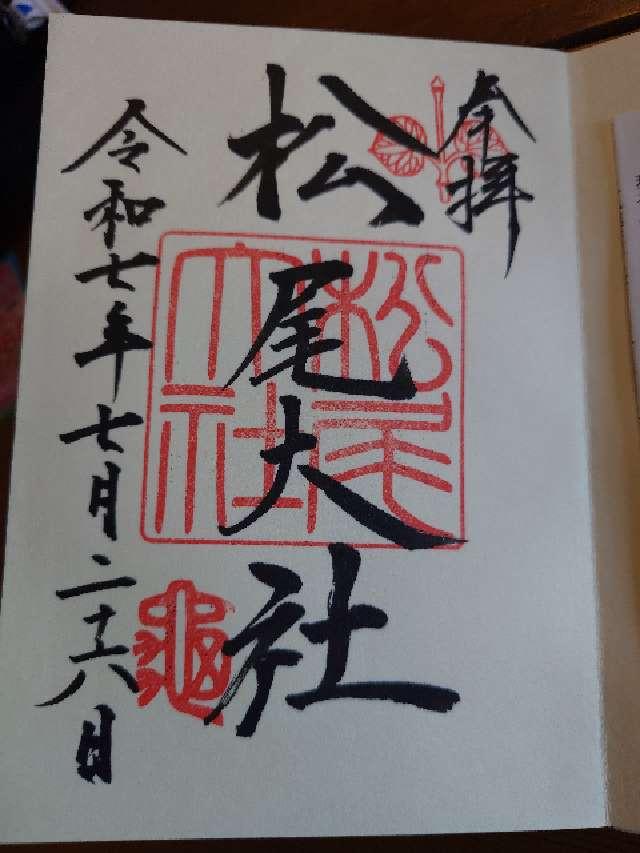 奉拝
松尾大社
松尾大社
亀
令和七年七月二十六日